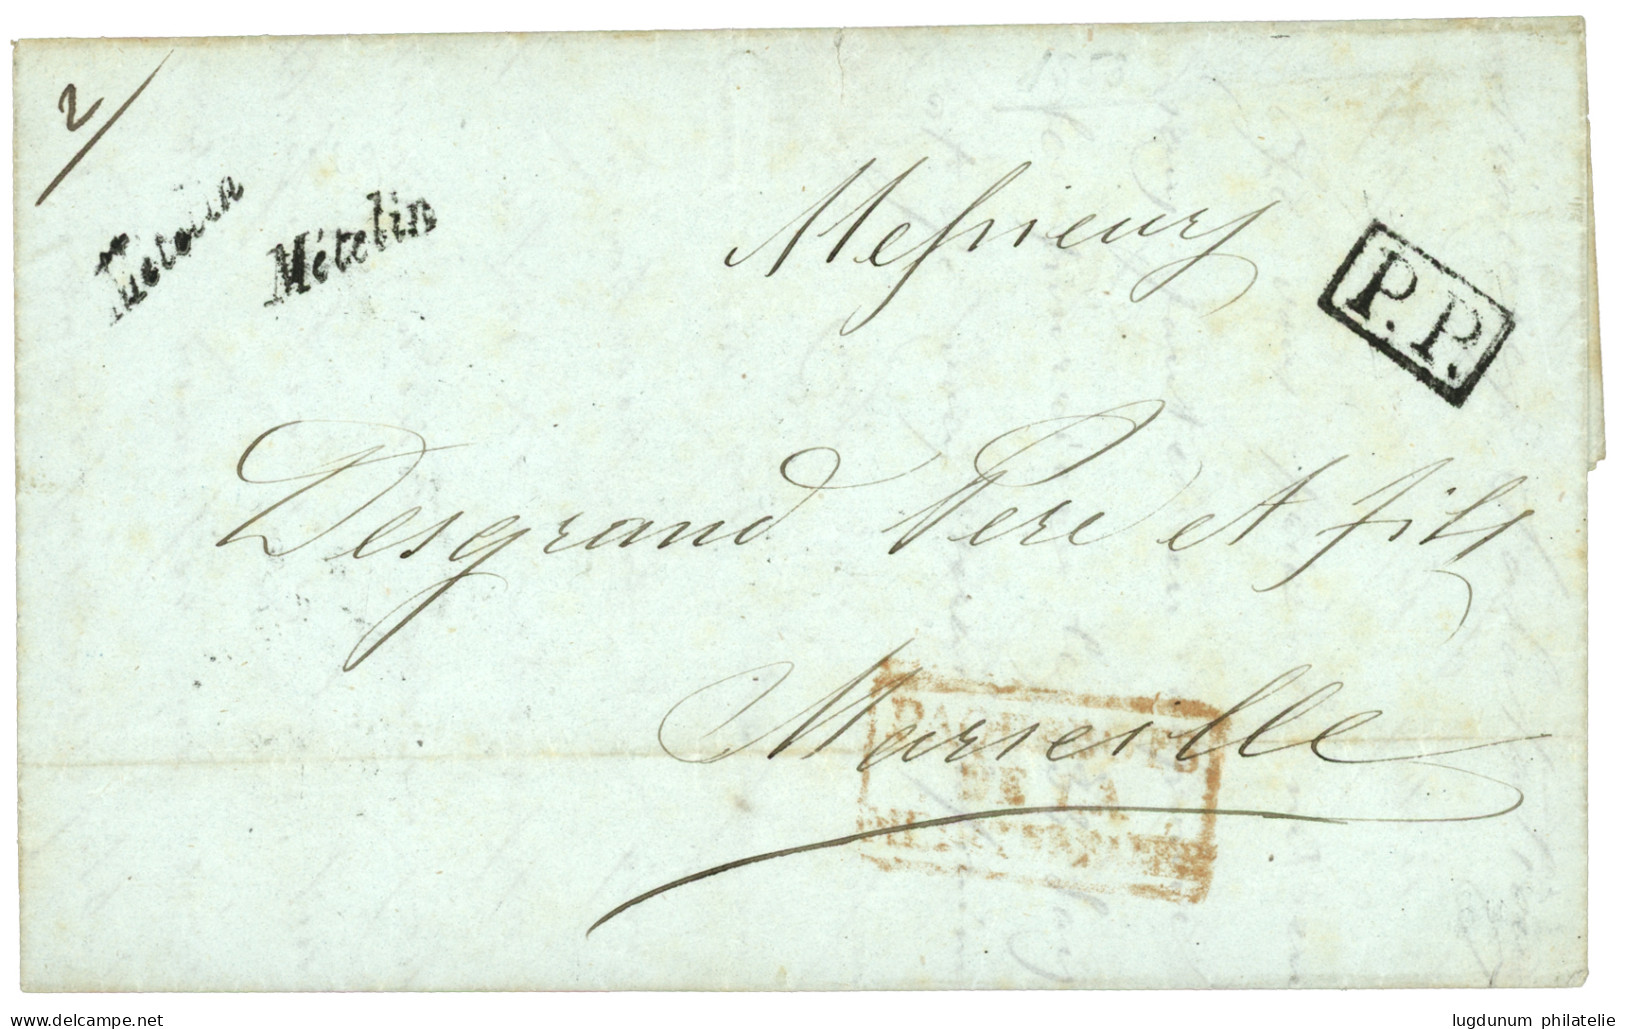 2/
Métélin
Métélin
P.P.
Messieurs
Desgrand Pere et fils
Marseille
PAQUEBOTS
DE LA
MÉDITERRANÉE
www.delcampe.net
lugdunum philatelie